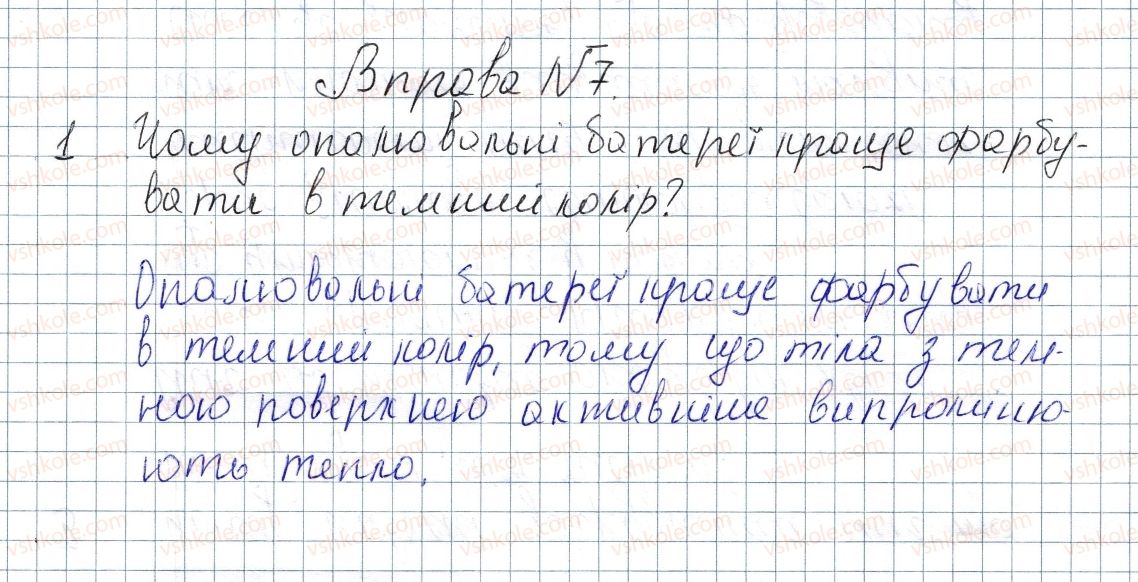 Вправа №7.
1 Чому опалювальні батереї краще фарбу-
вати в темний колір?
Опалювальні батереї краще фарбувати
в темний колір, тому що тіла з тем-
ною поверхнею активніше випроміню-
ють тепло.